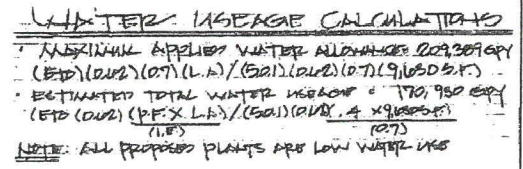 WATER USEAGE CALCULATIONS
· MAXIMUM APPLIED WATER ALLOWANCE: 209,389 GPY
(ETO)(0.62)(0.7)(L.A)/(50.1)(0.62)(0.7)(9,630 S.F.)
· ESTIMATED TOTAL WATER USEAGE = 170,950 GPY
(ETO (0.62) (P.F. X L.A)/(50.1)(0.62) .4 X 9,630 S.F.)
(I.E.) (0.7)
NOTE: ALL PROPOSED PLANTS ARE LOW WATER USE